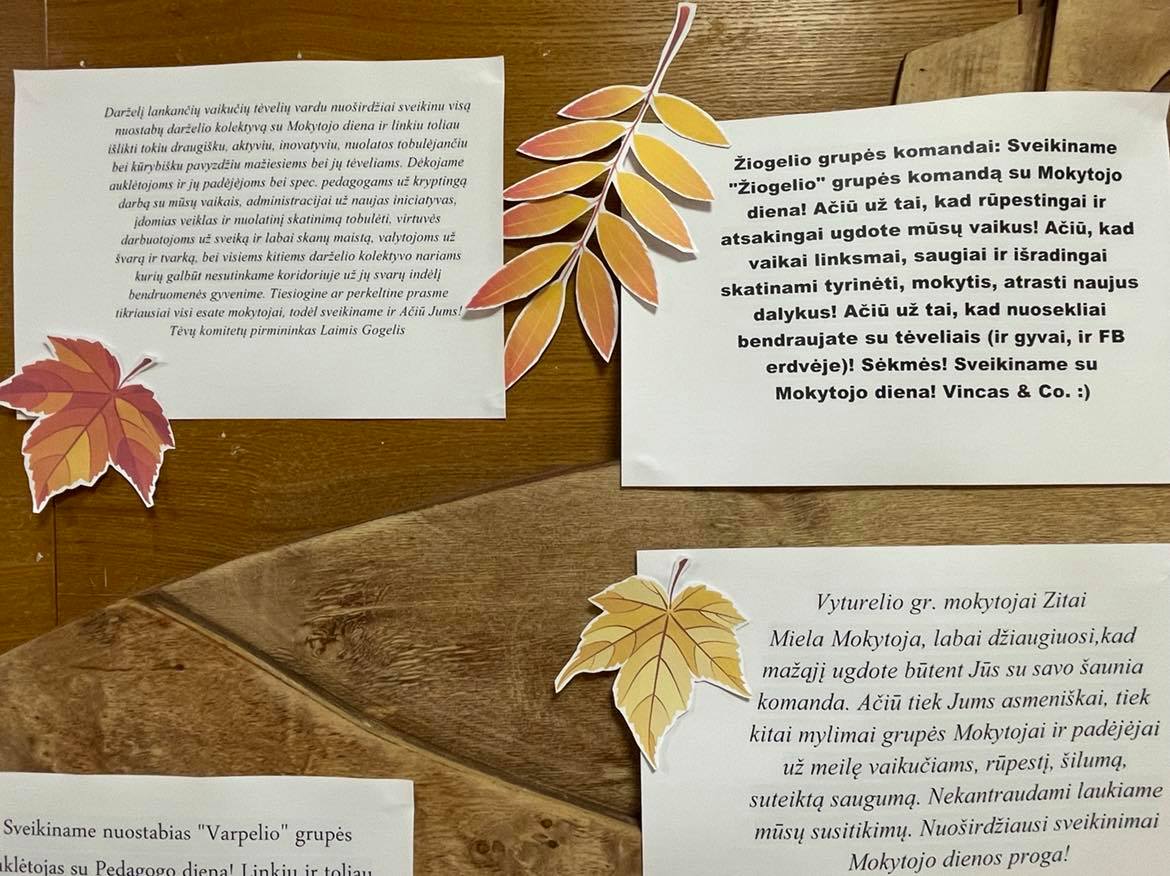 Darželį lankančių vaikučių tėvelių vardu nuoširdžiai sveikinu visą
nuostabų darželio kolektyvą su Mokytojo diena ir linkiu toliau
išlikti tokiu draugišku, aktyviu, inovatyviu, nuolatos tobulėjančiu
bei kūrybišku pavyzdžiu mažiesiems bei jų tėveliams. Dėkojame
auklėtojoms ir jų padėjėjoms bei spec. pedagogams už kryptingą
darbą su mūsų vaikais, administracijai už naujas iniciatyvas,
įdomias veiklas ir nuolatinį skatinimą tobulėti, virtuvės
darbuotojoms už sveiką ir labai skanų maistą, valytojoms už
švarą ir tvarką, bei visiems kitiems darželio kolektyvo nariams
kurių galbūt nesutinkame koridoriuje už jų svarų indėlį
bendruomenės gyvenime. Tiesiogine ar perkeltine prasme
tikriausiai visi esate mokytojai, todėl sveikiname ir Ačiū Jums!
Tėvų komitetų pirmininkas Laimis Gogelis
Žiogelio grupės komandai: Sveikiname
"Žiogelio" grupės komandą su Mokytojo
diena! Ačiū už tai, kad rūpestingai ir
atsakingai ugdote mūsų vaikus! Ačiū, kad
vaikai linksmai, saugiai ir išradingai
skatinami tyrinėti, mokytis, atrasti naujus
dalykus! Ačiū už tai, kad nuosekliai
bendraujate su tėveliais (ir gyvai, ir FB
erdvėje)! Sėkmės! Sveikiname su
Mokytojo diena! Vincas & Co. :)
Vyturelio gr. mokytojai Zitai
Miela Mokytoja, labai džiaugiuosi,kad
mažąjį ugdote būtent Jūs su savo šaunia
komanda. Ačiū tiek Jums asmeniškai, tiek
kitai mylimai grupės Mokytojai ir padėjėjai
už meilę vaikučiams, rūpestį, šilumą,
suteiktą saugumą. Nekantraudami laukiame
mūsų susitikimų. Nuoširdžiausi sveikinimai
Mokytojo dienos proga!
Sveikiname nuostabias "Varpelio" grupės
uklėtojas su Pedagogo diena! Linkiu ir toliau